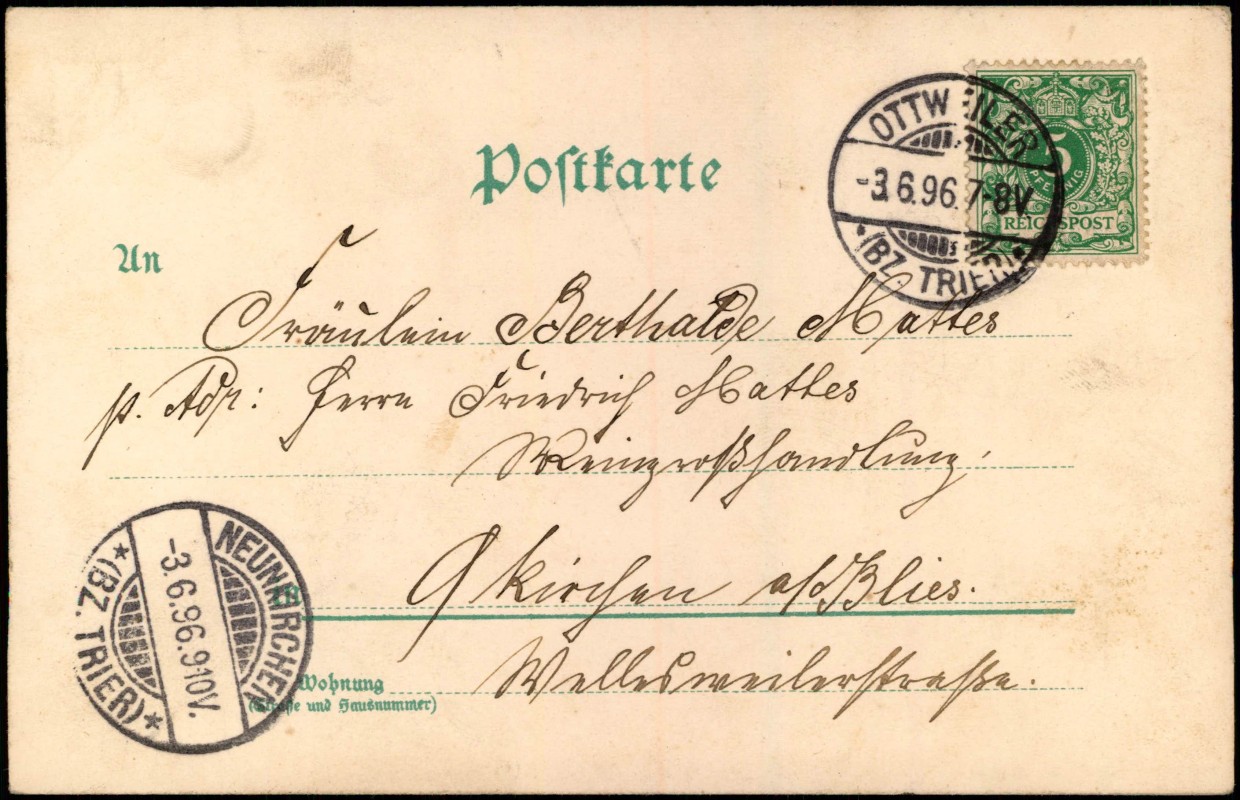 Postkarte
OTTWEILER
-3.6.96.7-8V.
*(BZ. TRIER)*
5
PFENNIG
REICHSPOST
An
Fräulein Berthalde Mattes
p. Adr: Herrn Friedrich Mattes
Weingroßhandlung.
kirchen a/d Blies.
Wellesweilerstraße.
NEUNKIRCHEN
-3.6.96.9-10V.
*(BZ. TRIER)*
Wohnung
(Straße und Hausnummer)